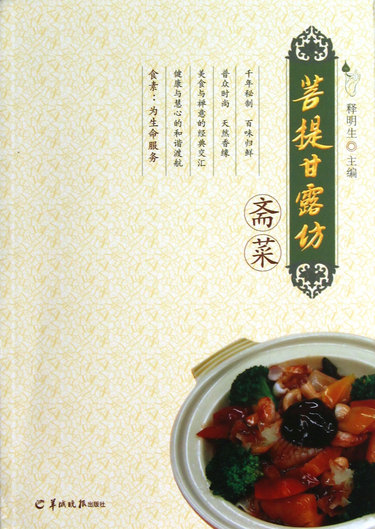 释明生◎主编
菩提甘露坊
斋菜
千年秘制 百味归鲜
普众时尚 天然香缘
美食与禅意的经典交汇
健康与慧心的和谐渡航
食素：为生命服务
羊城晚报出版社